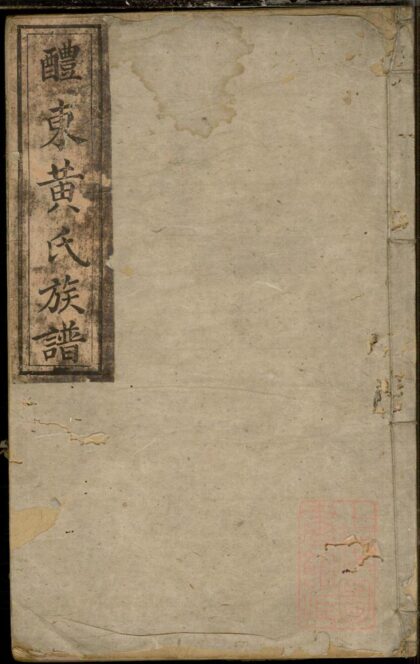 醴東黄氏族譜